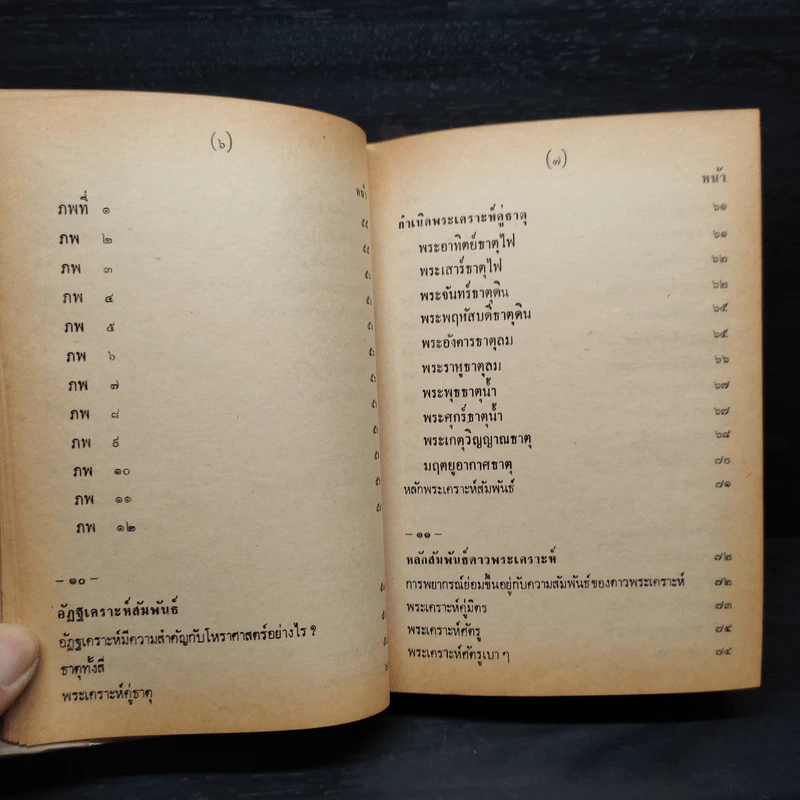 (๖)
หน้า
ภพที่ ๑
ภพ ๒ ๕๕
ภพ ๓
ภพ ๔
ภพ ๕
ภพ ๖
ภพ ๗
ภพ ๘
ภพ ๙
ภพ ๑๐
ภพ ๑๑
ภพ ๑๒
– ๑๐ –
อัฏฐเคราะห์สัมพันธ์
อัฏฐเคราะห์มีความสำคัญกับโหราศาสตร์อย่างไร ?
ธาตุทั้งสี่
พระเคราะห์คู่ธาตุ
(๗)
หน้า
กำเนิดพระเคราะห์คู่ธาตุ ๖๑
พระอาทิตย์ธาตุไฟ ๖๑
พระเสาร์ธาตุไฟ ๖๒
พระจันทร์ธาตุดิน ๖๒
พระพฤหัสบดีธาตุดิน ๖๕
พระอังคารธาตุลม ๖๕
พระราหูธาตุลม ๖๖
พระพุธธาตุน้ำ ๖๗
พระศุกร์ธาตุน้ำ ๖๗
พระเกตุวิญญาณธาตุ ๖๘
มฤตยูอากาศธาตุ ๗๐
หลักพระเคราะห์สัมพันธ์ ๗๑
– ๑๑ –
หลักสัมพันธ์ดาวพระเคราะห์ ๗๒
การพยากรณ์ย่อมขึ้นอยู่กับความสัมพันธ์ของดาวพระเคราะห์ ๗๒
พระเคราะห์คู่มิตร ๗๓
พระเคราะห์ศัตรู ๗๔
พระเคราะห์ศัตรูเบา ๆ ๗๔